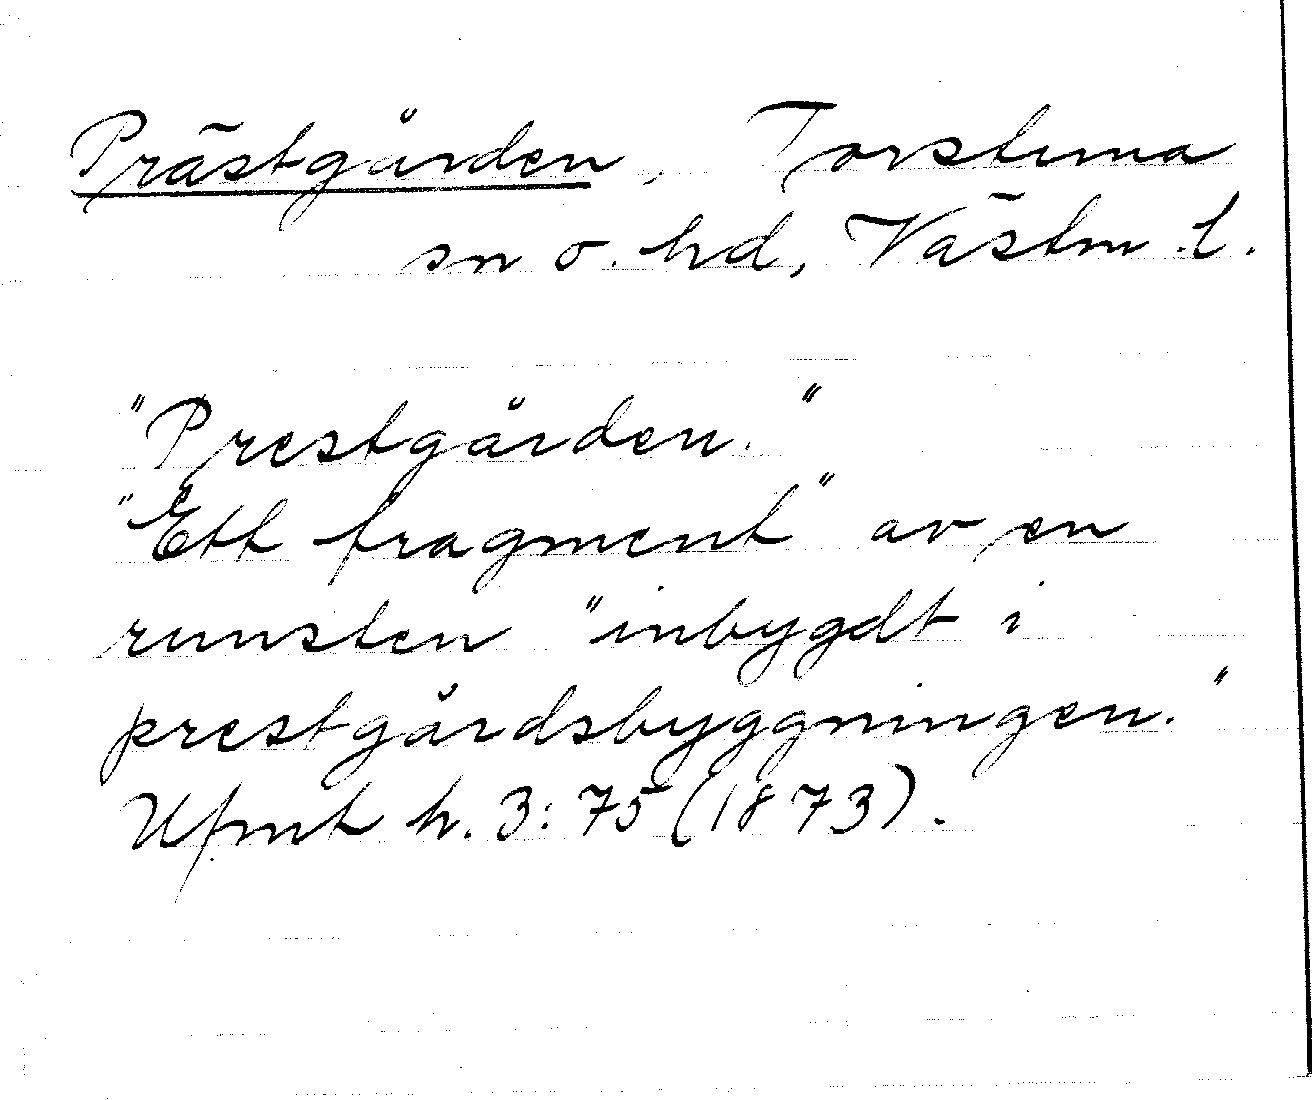 Prästgården, Torstuna
sn o. hd, Västm. l.
"Prestgården."
"Ett fragment" av en
runsten "inbygdt i
prestgårdsbyggningen."
Ufmt h. 3:75 (1873).